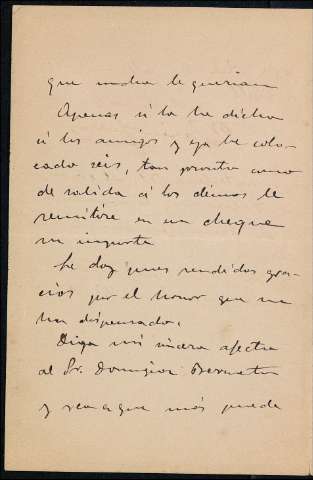 que mucho le querian
Apenas si lo he dicho
á los amigos y ya he colo-
cado seis, tan pronto como
de salida á los demas le
remitiré en un cheque
su importe
Le doy mis rendidas gra-
cias por el honor que me
ha dispensado.
Diga mi afecto
al Sr. Dominguez
y vea en que más puede